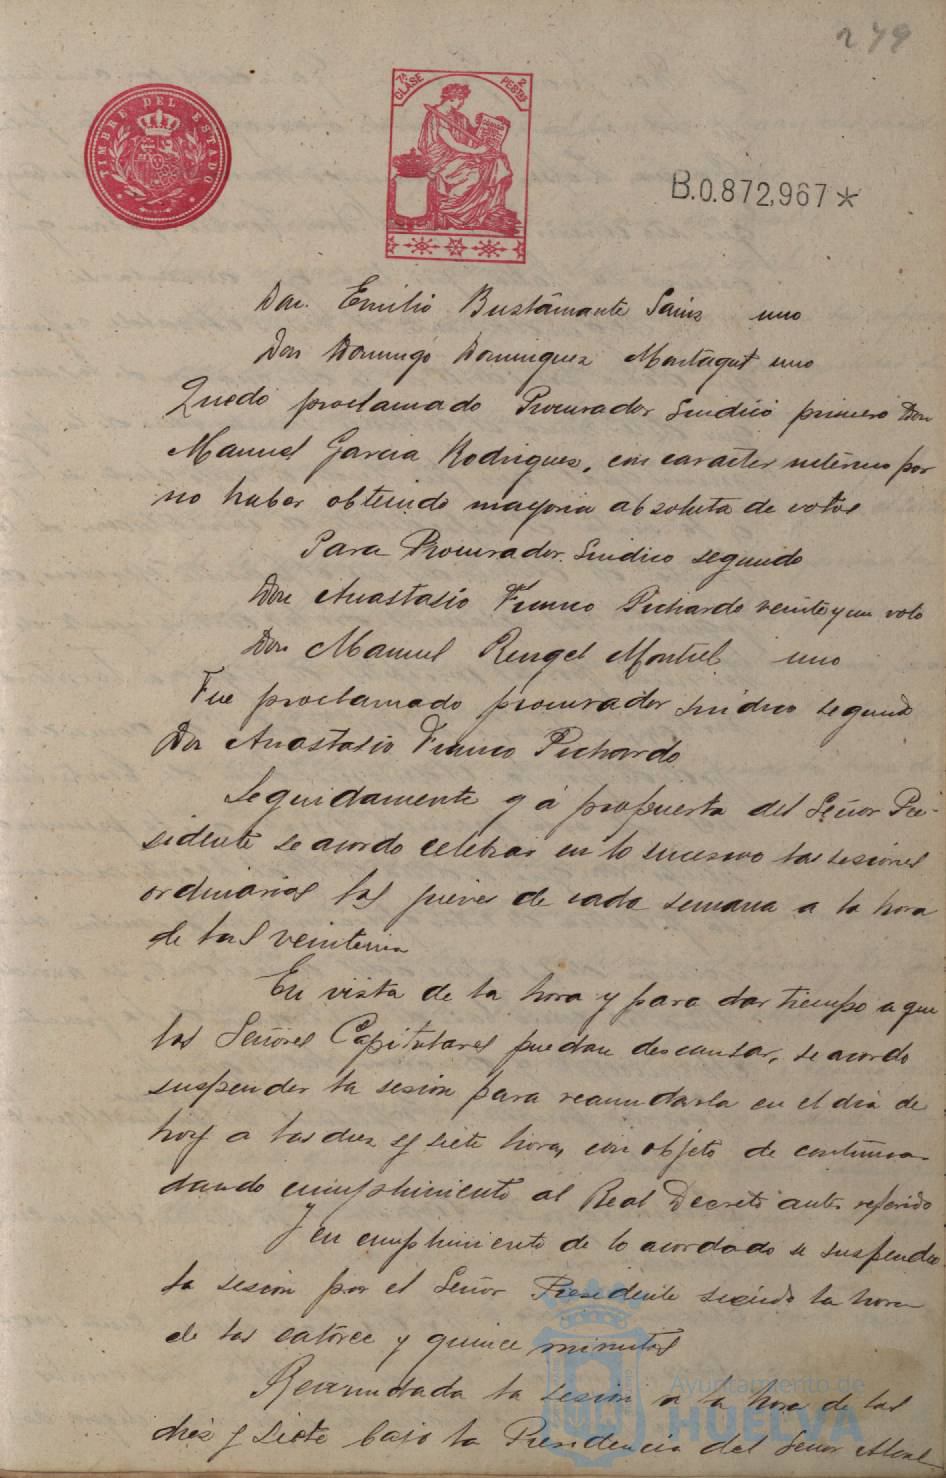 279
TIMBRE DEL ESTADO
7ª CLASE
2 PESTAS
B.0.872,967*
Don Emilio Bustamante Sainz uno
Don Domingo Dominguez Montagut uno
Quedó proclamado Procurador Sindico primero Don
Manuel Garcia Rodriguez, con caracter interino por
no haber obtenido mayoria absoluta de votos
Para Procurador Sindico segundo
Don Anastasio Franco Pichardo veinte y un voto
Don Manuel Rengel Montiel uno
Fue proclamado procurador sindico segundo
Don Anastasio Franco Pichardo
Seguidamente y á propuesta del Señor Pre-
sidente se acordo celebrar en lo sucesivo las sesiones
ordinarias los jueves de cada semana a la hora
de las veintiuna
En vista de la hora y para dar tiempo a que
los Señores Capitulares puedan descansar, se acordo
suspender la sesion para reanudarla en el dia de
hoy a las diez y siete horas, con objeto de continuar
dando cumplimiento al Real Decreto antes referido
Y en cumplimiento de lo acordado se suspendio
la sesion por el Señor Presidente siendo la hora
de las catorce y quince minutos
Reanudada la sesion a la hora de las
diez y siete bajo la Presidencia del Señor Alcal-
Ayuntamiento de
HUELVA